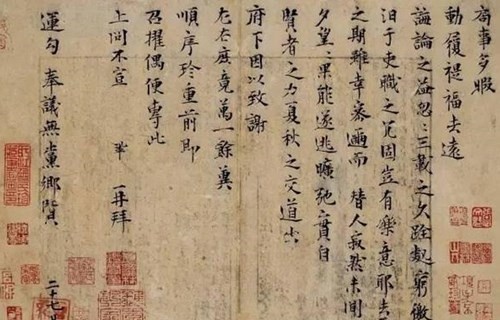 局事多暇
動履禔福去遠
誨論之益忽〻三載之久跧處窮徼
汨于吏職之冗固豈有樂意耶去
之期雖幸密邇而替人寂然未聞
夕望〻果能遂逃曠弛實自
賢者之力夏秋之交道出
府下因以致謝
左右庶竟萬一餘冀
順序珍重前即
召擢偶便專此
上問不宣 鞏 再拜
運勾 奉議無黨鄉賢
二十七